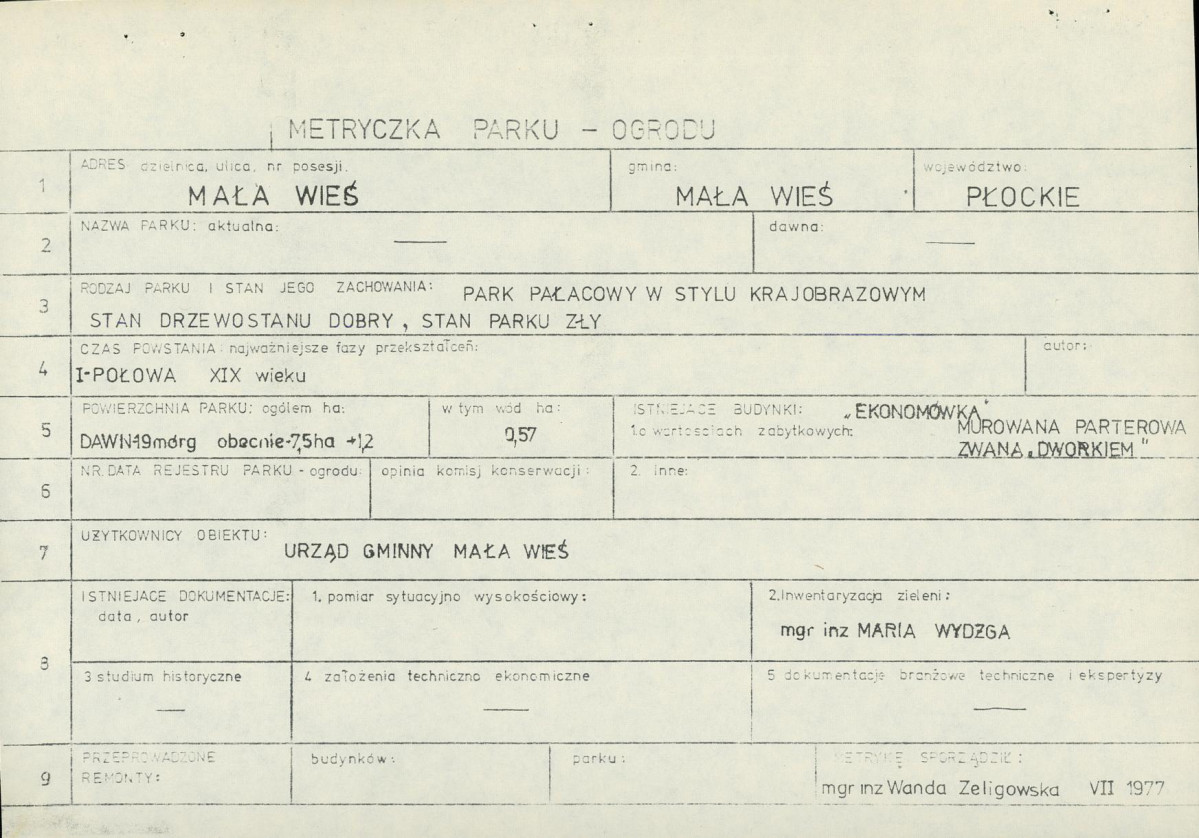 METRYCZKA PARKU - OGRODU
1 ADRES dzielnica, ulica, nr posesji. gmina: województwo:
MAŁA WIEŚ MAŁA WIEŚ PŁOCKIE
2 NAZWA PARKU: aktualna: — dawna: —
3 RODZAJ PARKU I STAN JEGO ZACHOWANIA: PARK PAŁACOWY W STYLU KRAJOBRAZOWYM
STAN DRZEWOSTANU DOBRY, STAN PARKU ZŁY
4 CZAS POWSTANIA: najważniejsze fazy przekształceń: autor:
I-POŁOWA XIX wieku
5 POWIERZCHNIA PARKU: ogółem ha: w tym wód ha: ISTNIEJĄCE BUDYNKI: „EKONOMÓWKA"
DAWN-19mórg obecnie-7,5ha +1,2 0,57 1.o wartościach zabytkowych: MUROWANA PARTEROWA
ZWANA „DWORKIEM"
6 NR. DATA REJESTRU PARKU - ogrodu: opinia komisj konserwacji: 2. Inne:
7 UŻYTKOWNICY OBIEKTU:
URZĄD GMINNY MAŁA WIEŚ
8 ISTNIEJACE DOKUMENTACJE: 1. pomiar sytuacyjno wysokościowy: 2.Inwentaryzacja zieleni:
data, autor
mgr inz MARIA WYDZGA
3 studium historyczne 4 założenia techniczno ekonomiczne 5 dokumentacje branżowe techniczne i ekspertyzy
— — —
9 PRZEPROWADZONE budynków: parku: METRYKĘ SPORZĄDZIŁ:
REMONTY:
mgr inz Wanda Zeligowska VII 1977